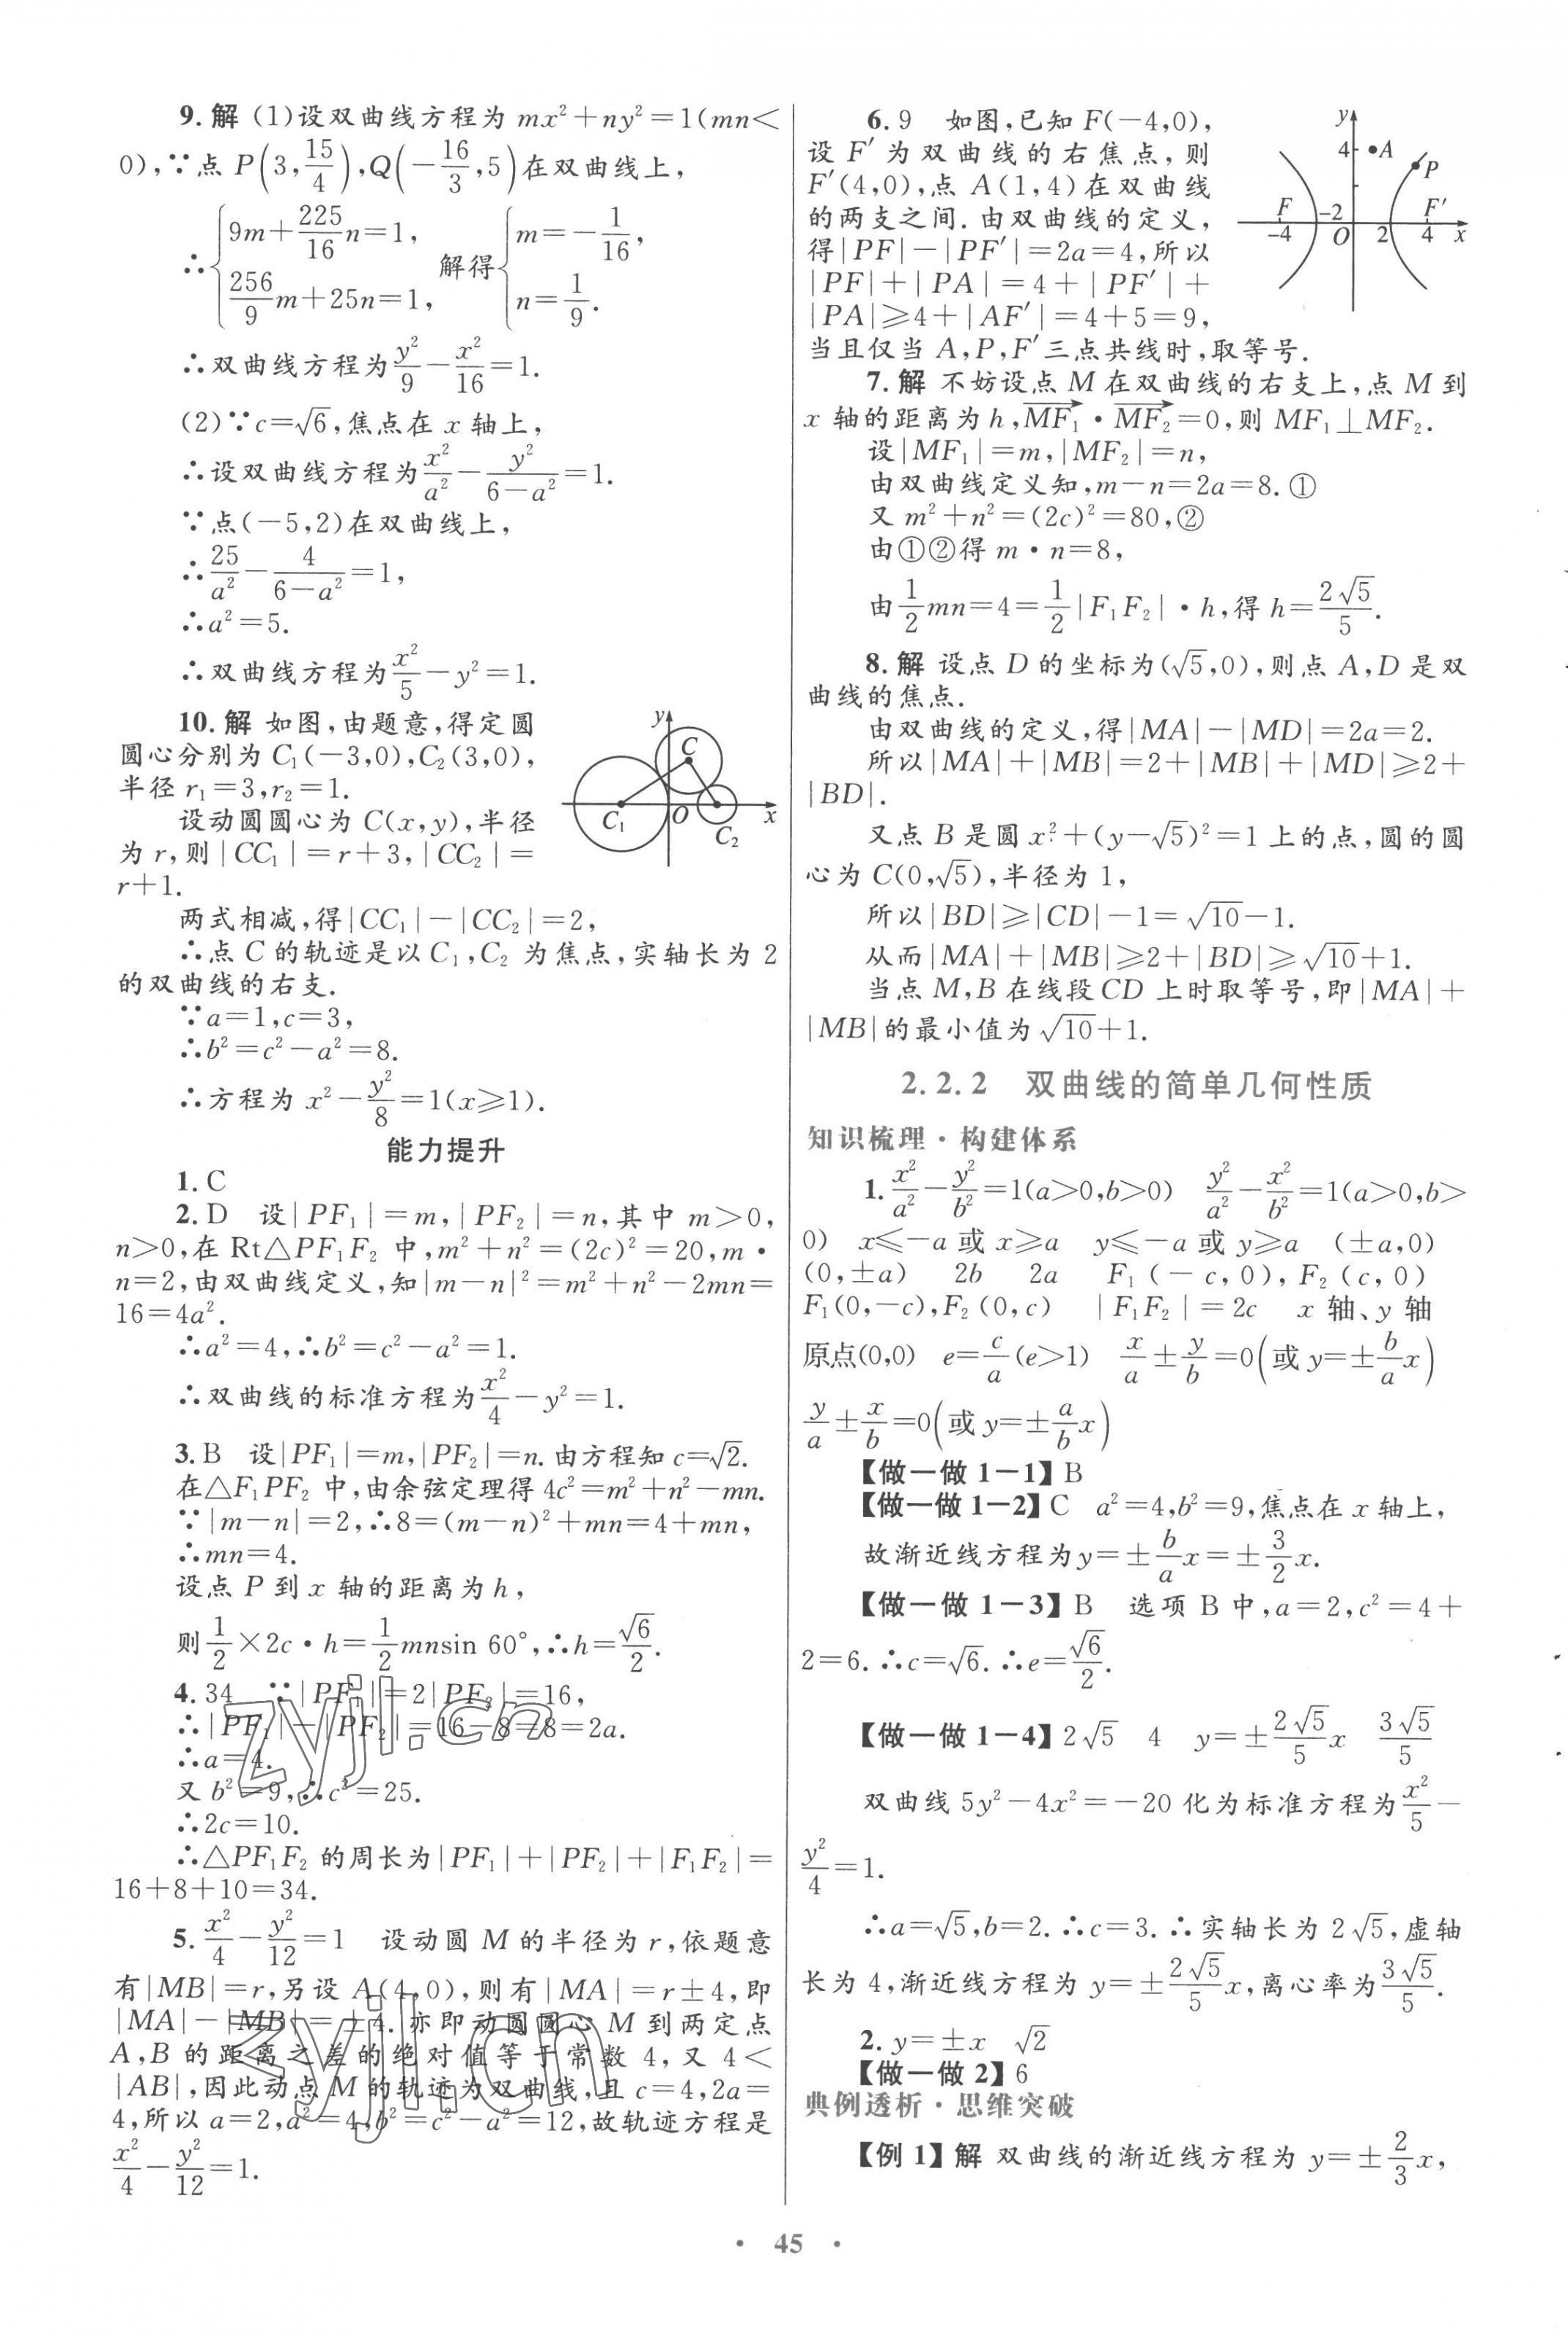 9. 解 (1)设双曲线方程为 mx²+ny²=1(mn<
0),∵点 P(3,15/4),Q(-16/3,5)在双曲线上,
∴{9m+225/16 n=1, 256/9 m+25n=1, 解得{m=-1/16, n=1/9.
∴双曲线方程为y²/9-x²/16=1.
(2)∵c=√6,焦点在 x 轴上,
∴设双曲线方程为x²/a²-y²/(6-a²)=1.
∵点(-5,2)在双曲线上,
∴25/a²-4/(6-a²)=1,
∴a²=5.
∴双曲线方程为x²/5-y²=1.
10. 解 如图,由题意,得定圆
圆心分别为 C₁(-3,0),C₂(3,0),
半径 r₁=3,r₂=1.
设动圆圆心为 C(x,y),半径
为 r,则|CC₁|=r+3,|CC₂|=
r+1.
y C C₁ O C₂ x
两式相减,得|CC₁|-|CC₂|=2,
∴点 C 的轨迹是以 C₁,C₂ 为焦点,实轴长为 2
的双曲线的右支.
∵a=1,c=3,
∴b²=c²-a²=8.
∴方程为 x²-y²/8=1(x≥1).
能力提升
1. C
2. D 设|PF₁|=m,|PF₂|=n,其中 m>0,
n>0,在 Rt△PF₁F₂ 中,m²+n²=(2c)²=20,m·
n=2,由双曲线定义,知|m-n|²=m²+n²-2mn=
16=4a².
∴a²=4,∴b²=c²-a²=1.
∴双曲线的标准方程为x²/4-y²=1.
3. B 设|PF₁|=m,|PF₂|=n.由方程知 c=√2.
在△F₁PF₂ 中,由余弦定理得 4c²=m²+n²-mn.
∵|m-n|=2,∴8=(m-n)²+mn=4+mn,
∴mn=4.
设点 P 到 x 轴的距离为 h,
则1/2×2c·h=1/2 mnsin 60°,∴h=√6/2.
4. 34 ∵|PF₁|=2|PF₂|=16,
∴|PF₁|-|PF₂|=16-8=8=2a.
∴a=4.
又 b²=9,∴c²=25.
∴2c=10.
∴△PF₁F₂ 的周长为|PF₁|+|PF₂|+|F₁F₂|=
16+8+10=34.
5. x²/4-y²/12=1 设动圆 M 的半径为 r,依题意
有|MB|=r,另设 A(4,0),则有|MA|=r±4,即
|MA|-|MB|=±4.亦即动圆圆心 M 到两定点
A,B 的距离之差的绝对值等于常数 4,又 4<
|AB|,因此动点 M 的轨迹为双曲线,且 c=4,2a=
4,所以 a=2,a²=4,b²=c²-a²=12,故轨迹方程是
x²/4-y²/12=1.
zyjl.cn
zyjl.cn
6. 9 如图,已知 F(-4,0),
设 F′ 为双曲线的右焦点,则
F′(4,0),点 A(1,4)在双曲线
的两支之间.由双曲线的定义,
得|PF|-|PF′|=2a=4,所以
|PF|+|PA|=4+|PF′|+
|PA|≥4+|AF′|=4+5=9,
当且仅当 A,P,F′三点共线时,取等号.
y 4 A P F -2 F′ -4 O 2 4 x
7. 解 不妨设点 M 在双曲线的右支上,点 M 到
x 轴的距离为 h,MF₁→·MF₂→=0,则 MF₁⊥MF₂.
设|MF₁|=m,|MF₂|=n,
由双曲线定义知,m-n=2a=8.①
又 m²+n²=(2c)²=80,②
由①②得 m·n=8,
由1/2 mn=4=1/2|F₁F₂|·h,得 h=2√5/5.
8. 解 设点 D 的坐标为(√5,0),则点 A,D 是双
曲线的焦点.
由双曲线的定义,得|MA|-|MD|=2a=2.
所以|MA|+|MB|=2+|MB|+|MD|≥2+
|BD|.
又点 B 是圆 x²+(y-√5)²=1 上的点,圆的圆
心为 C(0,√5),半径为 1,
所以|BD|≥|CD|-1=√10-1.
从而|MA|+|MB|≥2+|BD|≥√10+1.
当点 M,B 在线段 CD 上时取等号,即|MA|+
|MB|的最小值为√10+1.
2.2.2 双曲线的简单几何性质
知识梳理·构建体系
1. x²/a²-y²/b²=1(a>0,b>0) y²/a²-x²/b²=1(a>0,b>
0) x≤-a 或 x≥a y≤-a 或 y≥a (±a,0)
(0,±a) 2b 2a F₁(-c,0),F₂(c,0)
F₁(0,-c),F₂(0,c) |F₁F₂|=2c x 轴、y 轴
原点(0,0) e=c/a(e>1) x/a±y/b=0(或 y=±b/a x)
y/a±x/b=0(或 y=±a/b x)
【做一做 1-1】B
【做一做 1-2】C a²=4,b²=9,焦点在 x 轴上,
故渐近线方程为y=±b/a x=±3/2 x.
【做一做 1-3】B 选项 B 中,a=2,c²=4+
2=6.∴c=√6.∴e=√6/2.
【做一做 1-4】2√5 4 y=±2√5/5 x 3√5/5
双曲线 5y²-4x²=-20 化为标准方程为x²/5-
y²/4=1.
∴a=√5,b=2.∴c=3.∴实轴长为 2√5,虚轴
长为 4,渐近线方程为 y=±2√5/5 x,离心率为3√5/5.
2. y=±x √2
【做一做 2】6
典例透析·思维突破
【例 1】解 双曲线的渐近线方程为 y=±2/3 x,
· 45 ·